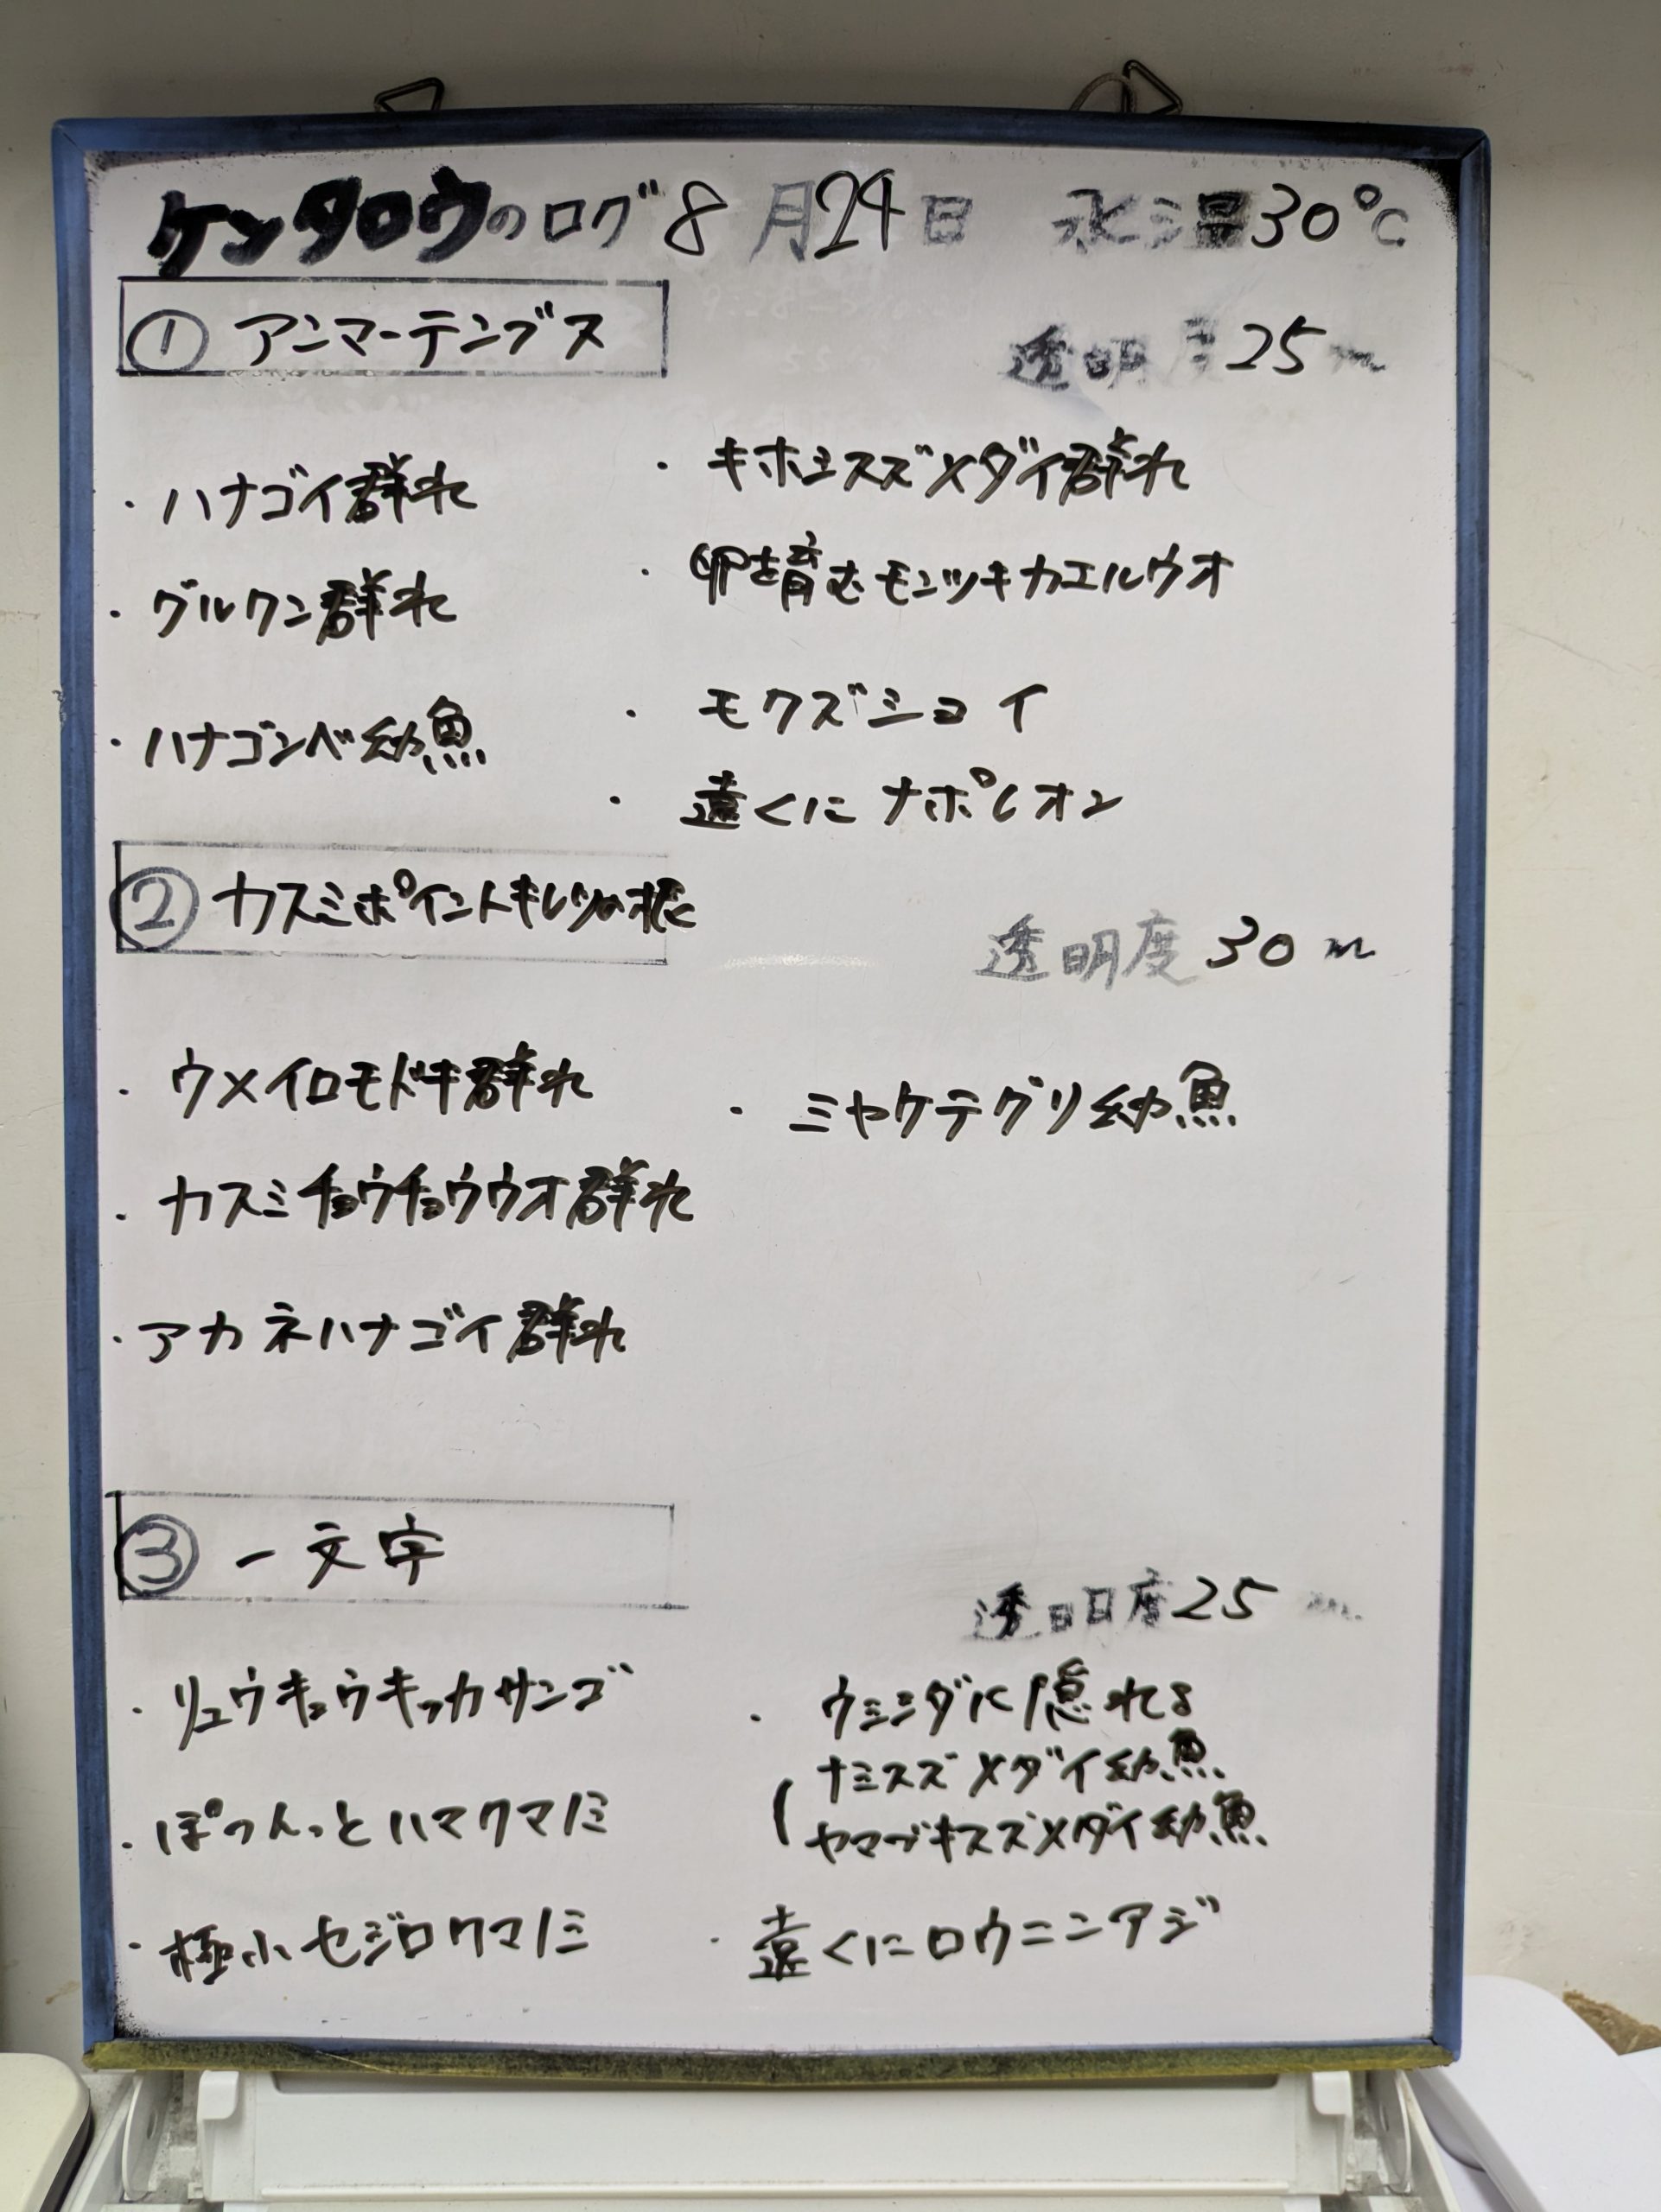 ケンタロウのログ 8月24日 水温30℃
① アンマーテンブス
透明度 25m
・ハナゴイ群れ
・グルクン群れ
・ハナゴンベ幼魚
・キホシスズメダイ群れ
・卵を育むモンツキカエルウオ
・モクズショイ
・遠くにナポレオン
② カスミポイントキレツの根
透明度 30m
・ウメイロモドキ群れ
・カスミチョウチョウウオ群れ
・アカネハナゴイ群れ
・ミヤケテグリ幼魚
③ 一文字
透明度 25m
・リュウキュウキッカサンゴ
・ぽつんっとハマクマノミ
・極小セジロクマノミ
・ウミシダに隠れる
(ナミスズメダイ幼魚
ヤマブキスズメダイ幼魚
・遠くにロウニンアジ